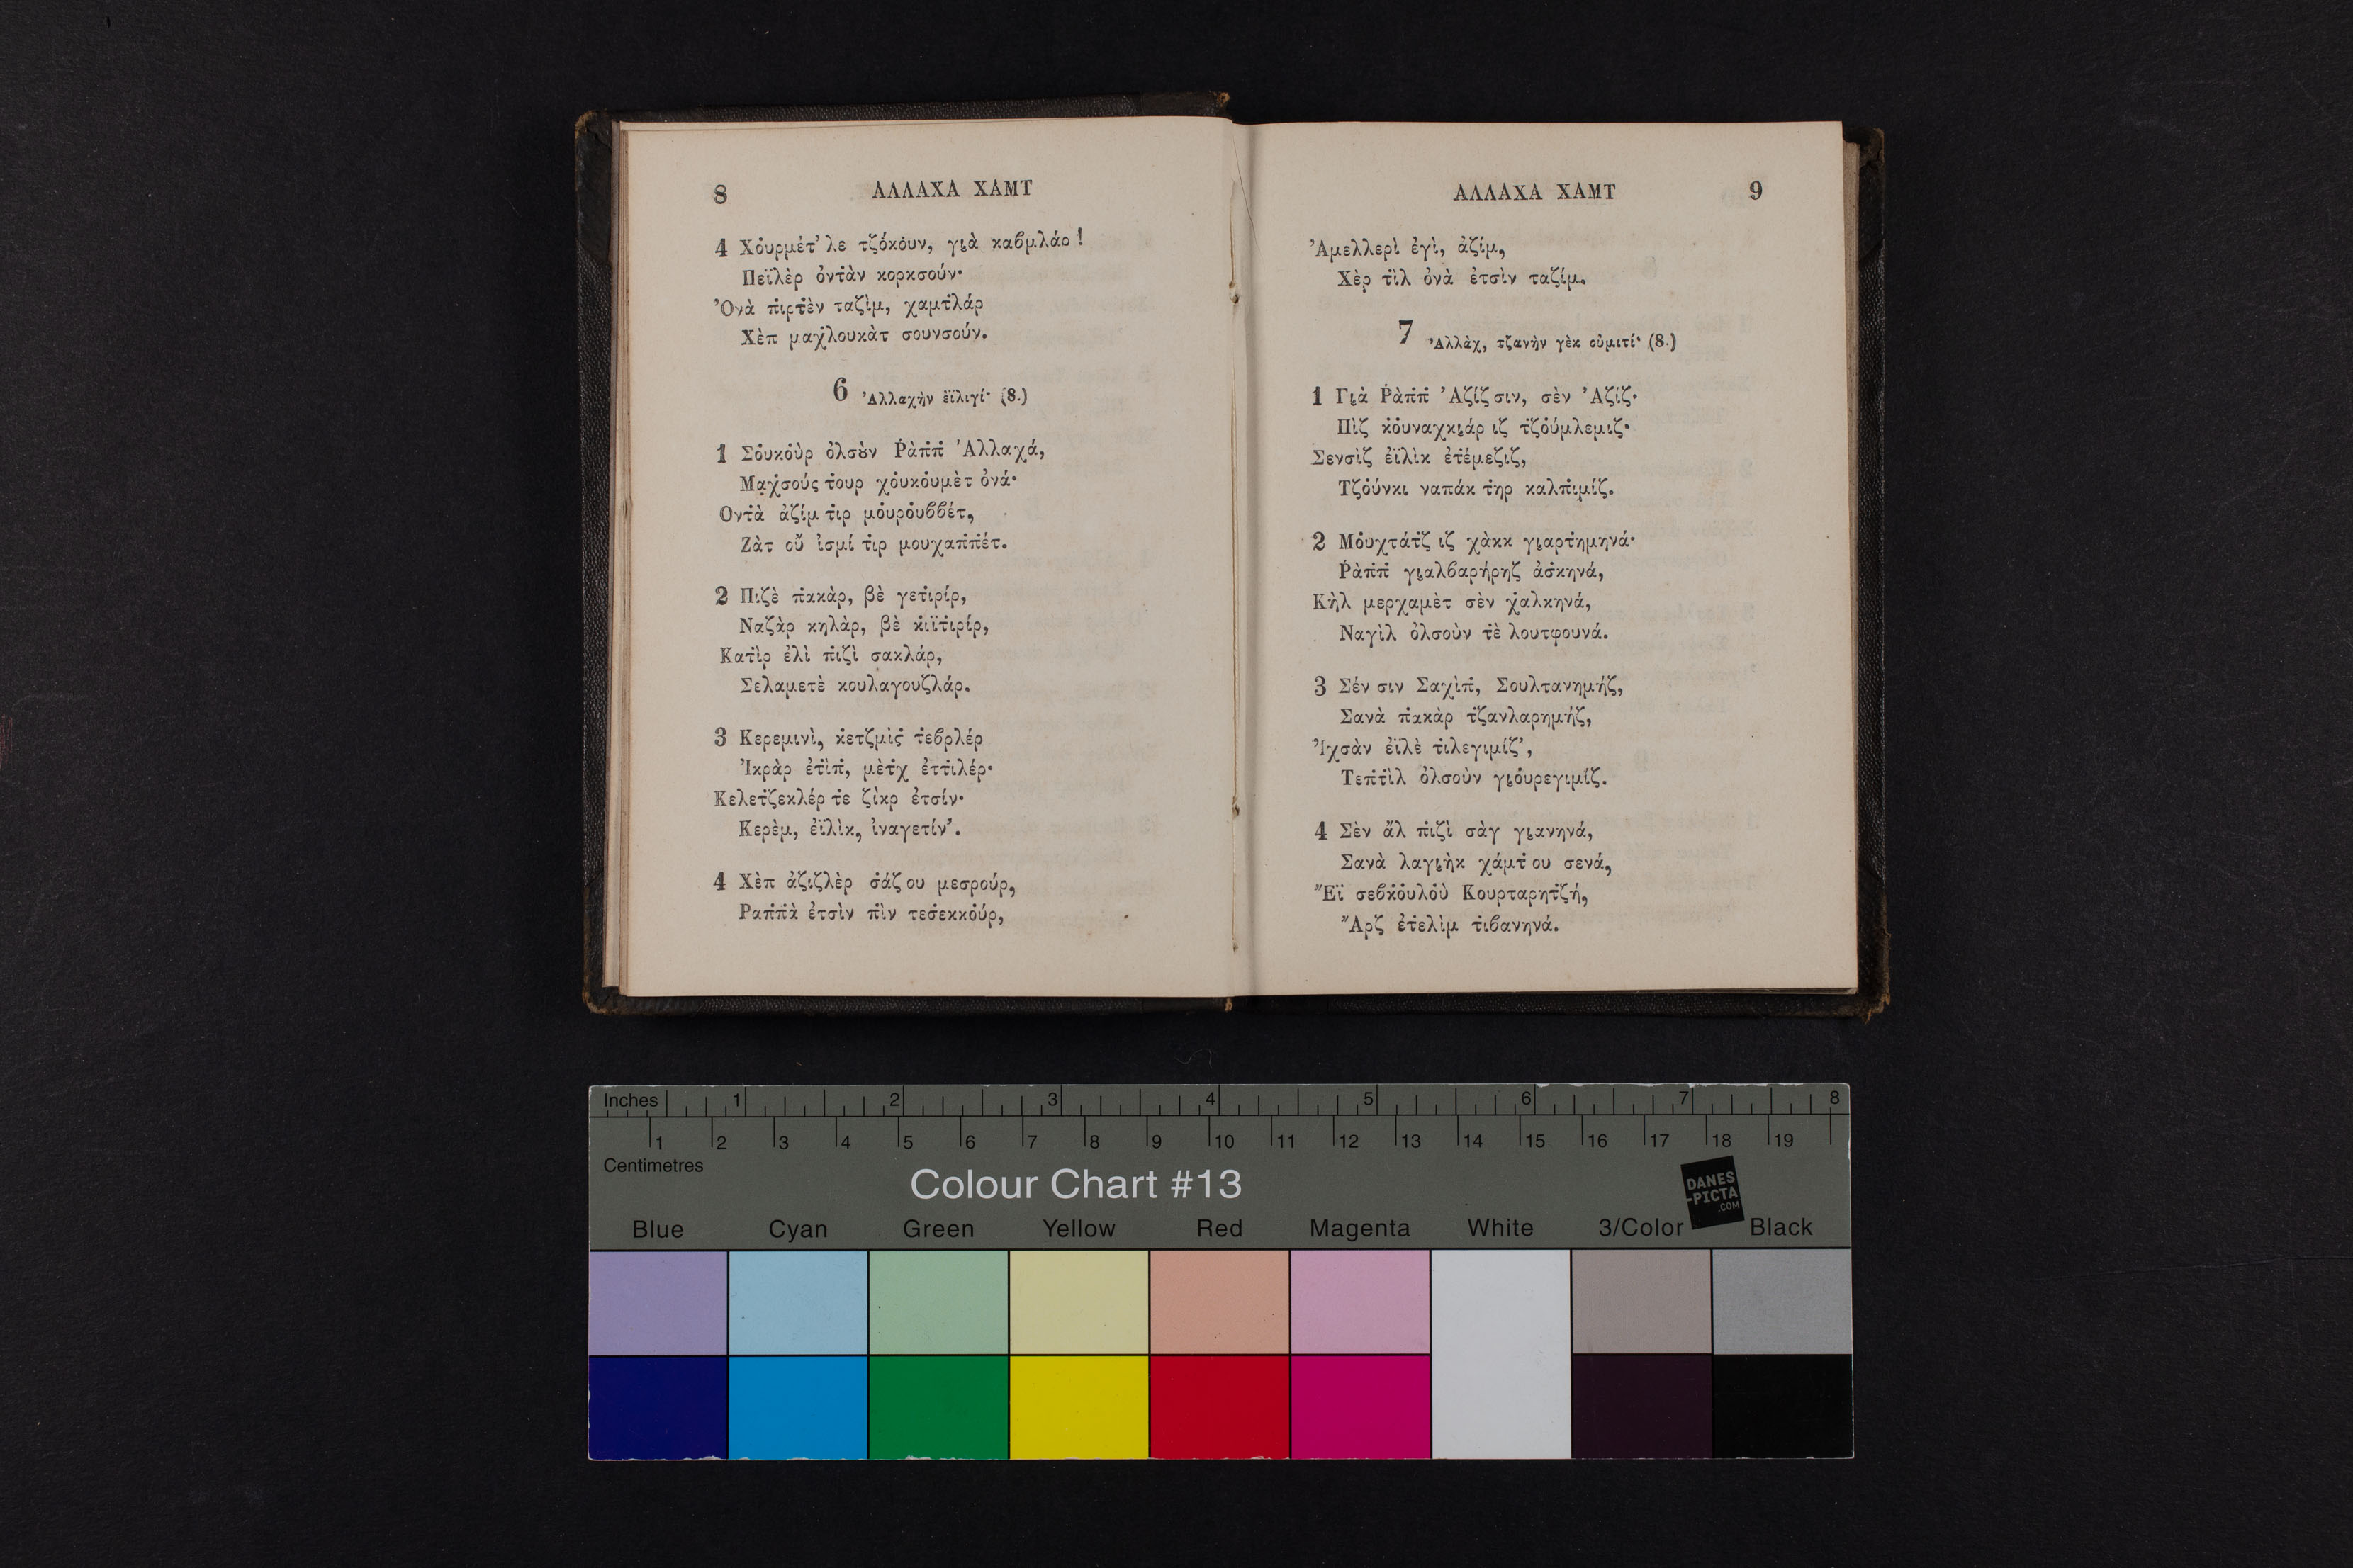 8 ΑΛΛΑΧΑ ΧΑΜΤ
4 Χο̇υρμέτ' λε τζο̇́κο̇υν, γι̣ὰ καβμλάρ!
Πεϊλὲρ ὀντὰν κορκσούν·
Ὀνὰ π̇ιρτ̇ὲν ταζὶμ, χαμτ̇λάρ
Χὲπ μαχ̇λουκὰτ σουνσούν.
6 Ἀλλαχὴν ἐϊλιγί· (8.)
1 Σ̇ο̇υκο̇ὺρ ὀλσȣ̀ν Ῥὰπ̇π̇ Ἀλλαχά,
Μαχ̇σούς τ̇ουρ χο̇υκο̇υμὲτ ὀνά·
Οντ̇ὰ ἀζίμ τ̇ιρ μο̇υρο̇υββέτ,
Ζὰτ οὔ ἰσμί τ̇ιρ μουχαπ̇π̇έτ.
2 Πιζὲ π̇ακὰρ, βὲ γετ̇ιρίρ,
Ναζὰρ κηλὰρ, βὲ κ̇ιϊτ̇ιρίρ,
Κατ̇ὶρ ἐλὶ π̇ιζὶ σακλάρ,
Σελαμετὲ κουλαγουζλάρ.
3 Κερεμινὶ, κ̇ετζμὶς̇ τ̇εβρλέρ
Ἰκρὰρ ἐτ̇ὶπ̇, μὲτ̇χ ἐττ̇ιλέρ·
Κελετ̇ζεκλέρ τ̇ε ζὶκρ ἐτσίν·
Κερὲμ, ἐϊλὶκ, ἰναγετίν'.
4 Χὲπ ἀζιζλὲρ σ̇άζ ου μεσρούρ,
Ραπ̇π̇ὰ ἐτσὶν π̇ὶν τεσ̇εκκο̇ύρ,
ΑΛΛΑΧΑ ΧΑΜΤ 9
Ἀμελλερὶ ἐγὶ, ἀζίμ,
Χὲρ τ̇ὶλ ὀνὰ ἐτσὶν ταζίμ.
7 Ἀλλὰχ, τζανὴν γὲκ οὐμιτί· (8.)
1 Γι̣ὰ Ῥὰπ̇π̇ Ἀζίζ σιν, σὲν Ἀζίζ·
Πὶζ κ̇ο̇υναχκι̣άρ ιζ τ̇ζο̇ύμλεμιζ·
Σενσὶζ ἐϊλὶκ ἐτ̇έμεζιζ,
Τζο̇ύνκι ναπάκ τ̇ηρ καλπ̇ιμίζ.
2 Μο̇υχτάτ̇ζ ιζ χὰκκ γι̣αρτ̇ημηνά·
Ῥὰπ̇π̇ γι̣αλβαρήρηζ ἀσ̇κηνά,
Κὴλ μερχαμὲτ σὲν χ̇αλκηνά,
Ναγὶλ ὀλσοὺν τ̇ὲ λουτφουνά.
3 Σέν σιν Σαχὶπ̇, Σουλτανημήζ,
Σανὰ π̇ακὰρ τ̇ζανλαρημήζ,
Ἰχσὰν ἐϊλὲ τ̇ιλεγιμίζ',
Τεπ̇τ̇ὶλ ὀλσοὺν γι̣ο̇υρεγιμίζ.
4 Σὲν ἄλ π̇ιζὶ σὰγ γι̣ανηνά,
Σανὰ λαγι̣ὴκ χάμτ̇ ου σενά,
Ἔϊ σεβκ̇ο̇υλο̇ὺ Κουρταρητ̇ζή,
Ἄρζ ἐτ̇ελὶμ τ̇ιβανηνά.
Inches 1 2 3 4 5 6 7 8
1 2 3 4 5 6 7 8 9 10 11 12 13 14 15 16 17 18 19
Centimetres
Colour Chart #13
DANES
-PICTA
.COM
Blue Cyan Green Yellow Red Magenta White 3/Color Black